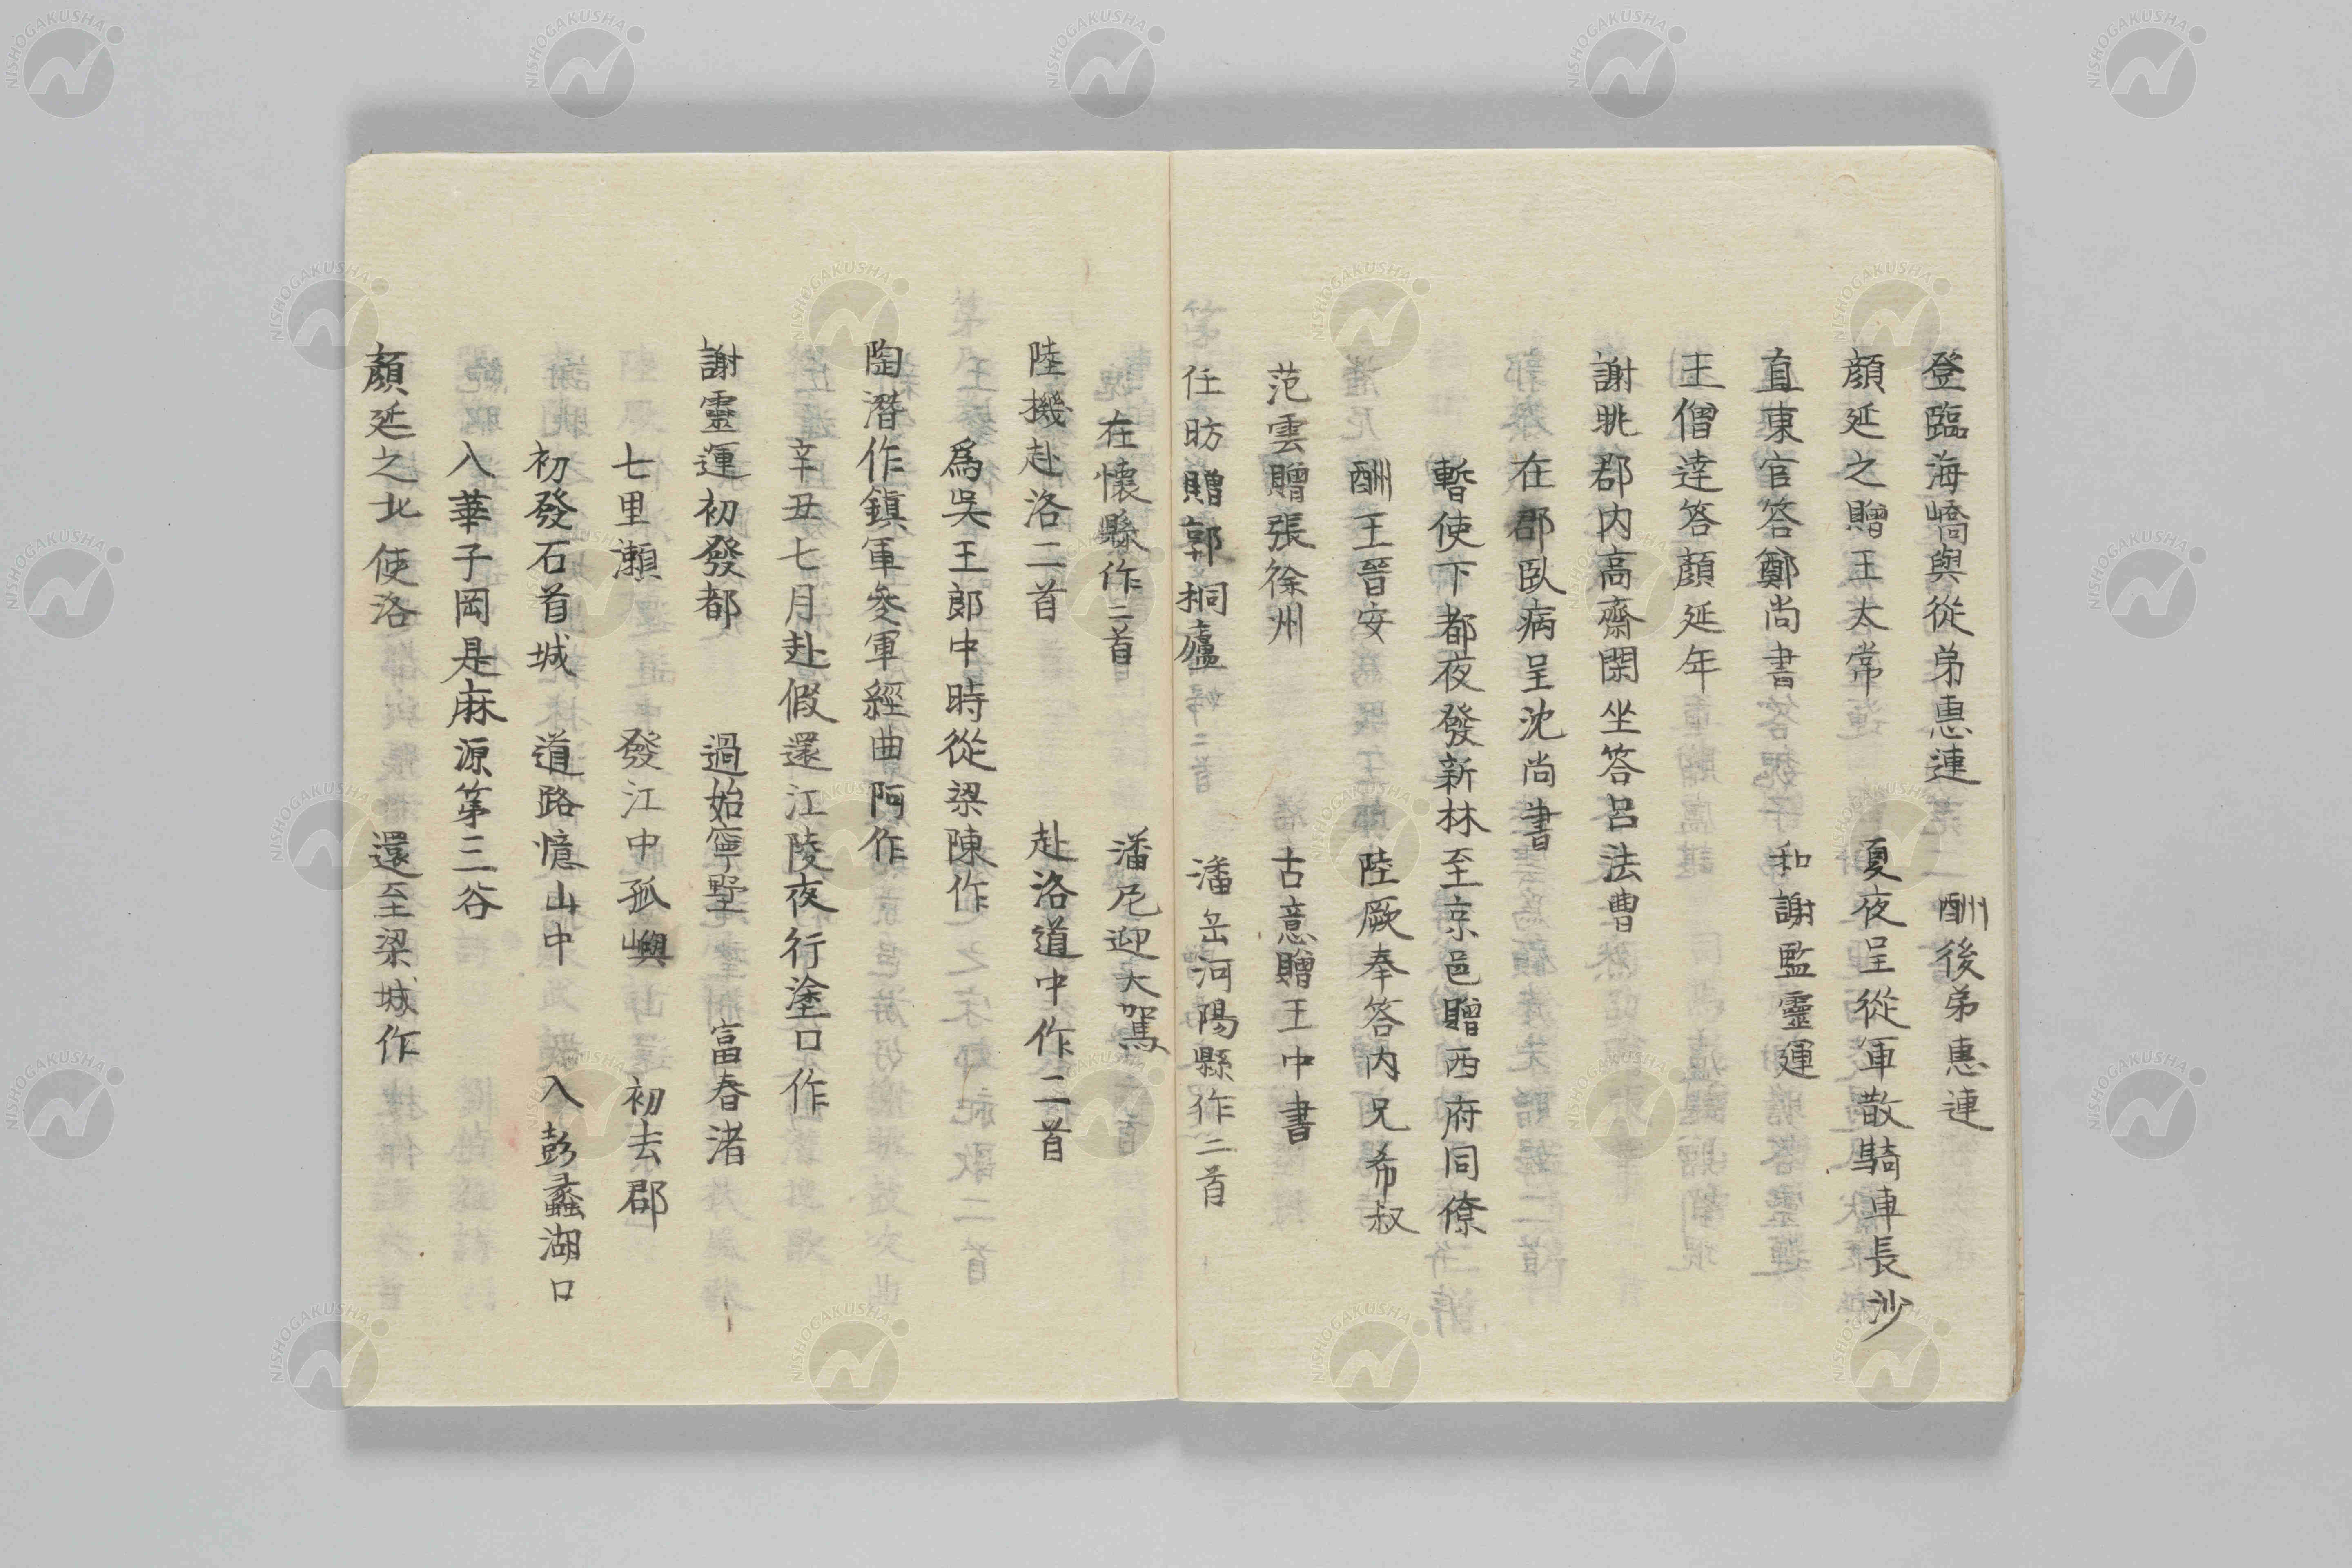 登臨海嶠與從弟惠連　酬從弟惠連
顏延之贈王太常　夏夜呈從軍散騎車長沙
直東宮答鄭尚書　和謝監靈運
王僧達答顏延年
謝眺郡内高齋閑坐答呂法曹
在郡臥病呈沈尚書
暫使下都夜發新林至京邑贈西府同僚
酬王晉安　陸厥奉答内兄希叔
范雲贈張徐州　古意贈王中書
任昉贈郭桐廬　潘岳河陽縣作二首
在懷縣作二首　潘尼迎大駕
陸機赴洛二首　赴洛道中作二首
爲吳王郎中時從梁陳作
陶潛作鎮軍參軍經曲阿作
辛丑七月赴假還江陵夜行塗口作
謝靈運初發都　過始寧墅　富春渚
七里瀨　發江中孤嶼　初去郡
初發石首城　道路憶山中　入彭蠡湖口
入華子岡是麻源第三谷
顏延之北使洛　還至梁城作
NISHOGAKUSHA